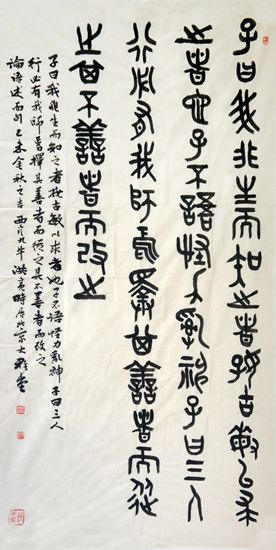 子曰我非生而知之者好古敏以求
之者也子不語怪力亂神子曰三人
行必有我師焉擇其善者而從
之其不善者而改之
子曰我非生而知之者好古敏以求者也子不語怪力亂神子曰三人
行必有我師焉擇其善者而從之其不善者而改之
論語述而句乙未金秋之吉